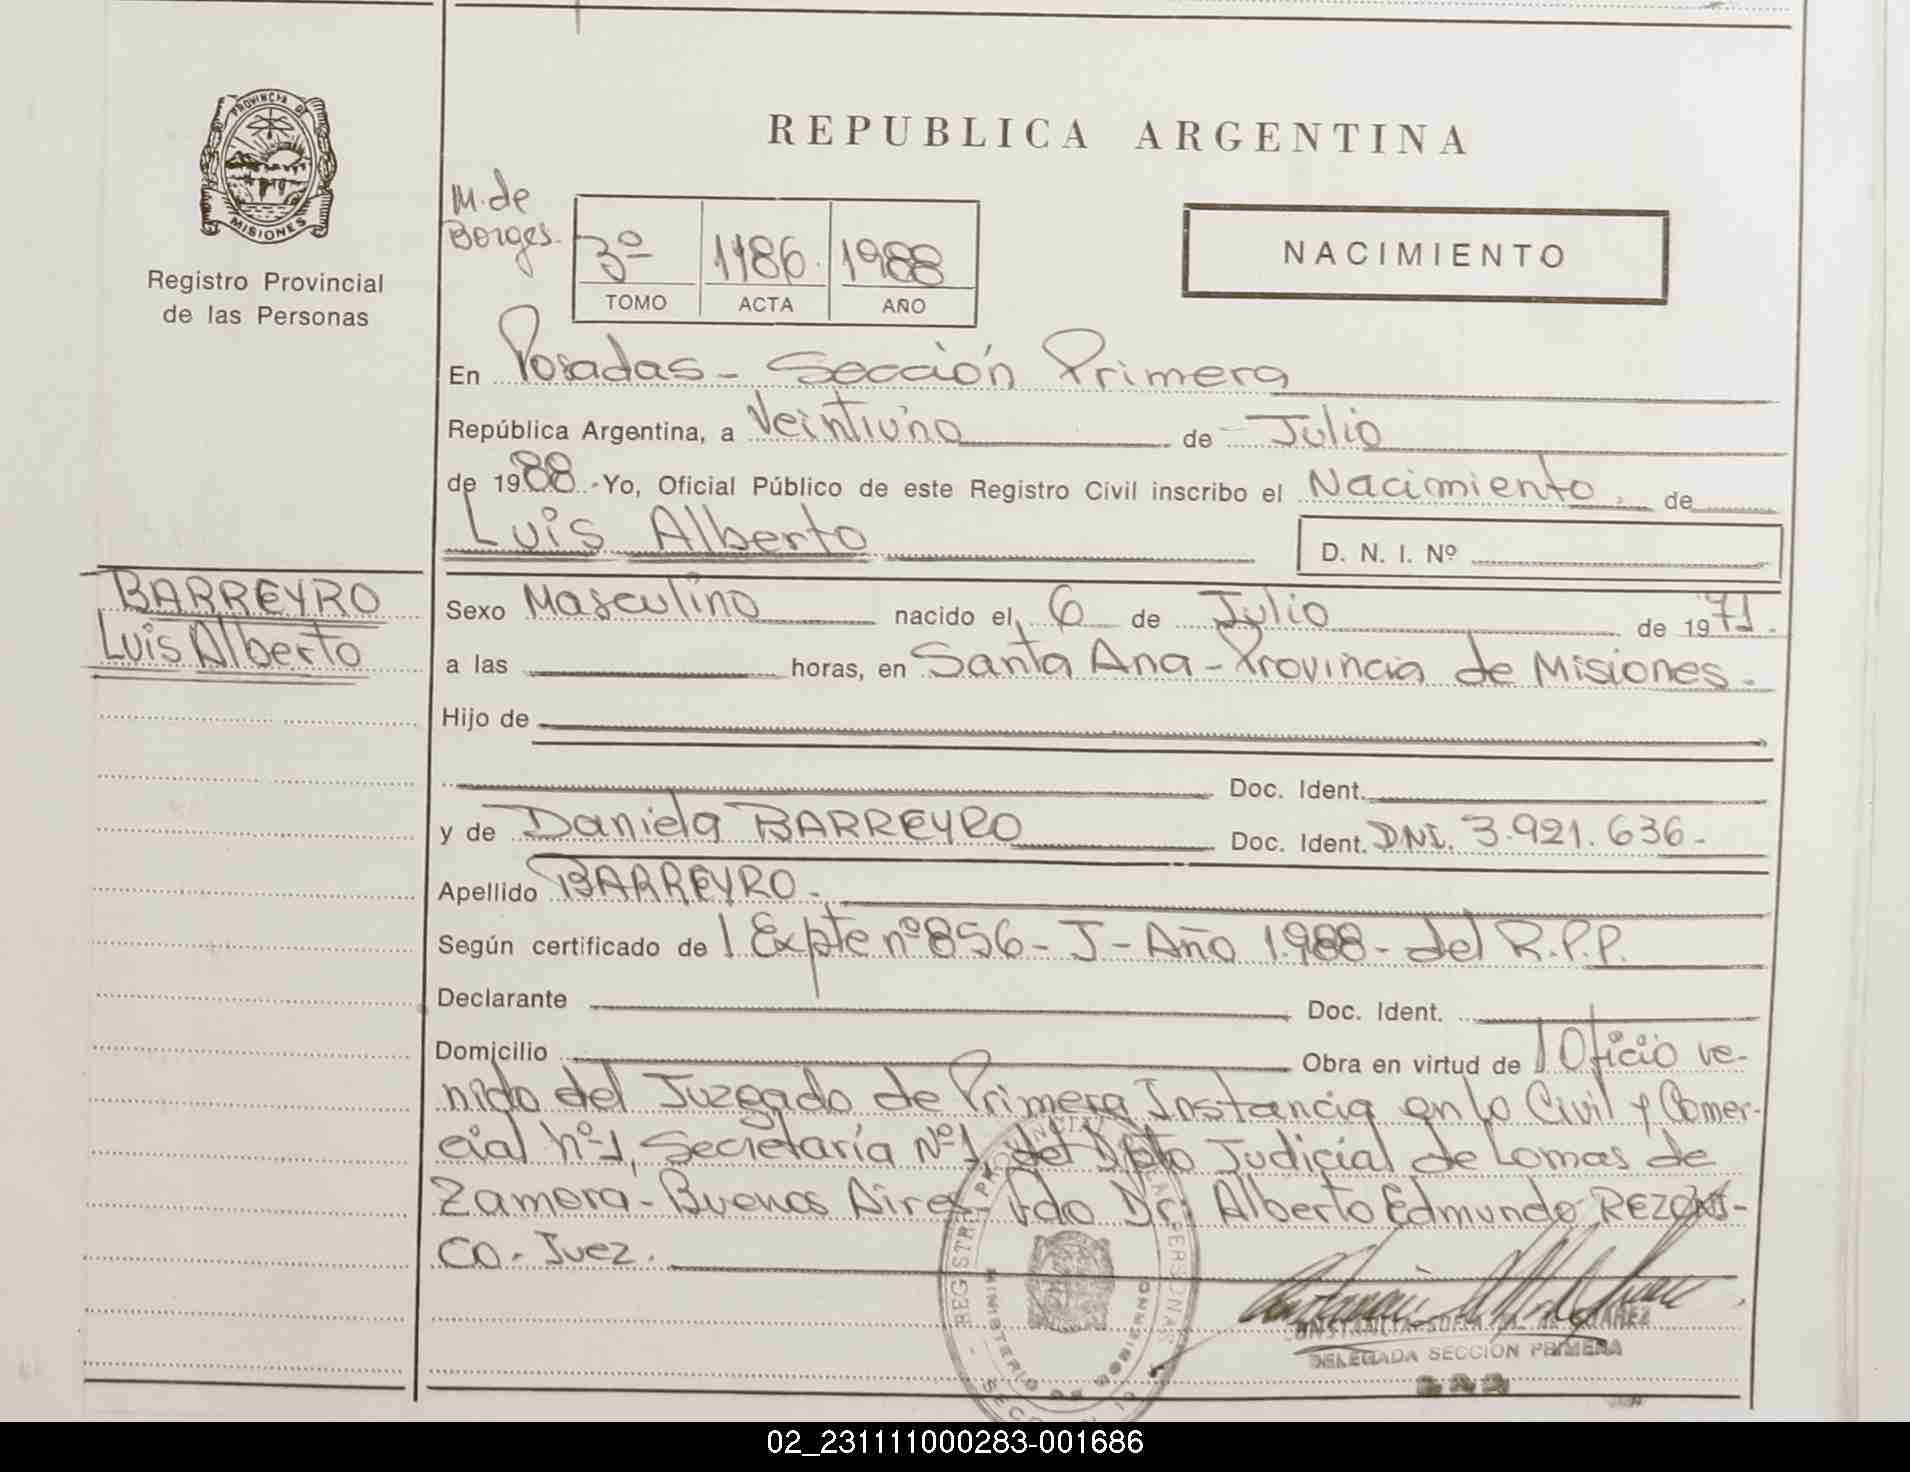 PROVINCIA D
MISIONES
Registro Provincial
de las Personas
REPUBLICA ARGENTINA
M. de
Borges.
3º 1186. 1988
TOMO ACTA AÑO
NACIMIENTO
En Posadas - Sección Primera
República Argentina, a Veintiuno de Julio
de 1988.- Yo, Oficial Público de este Registro Civil inscribo el Nacimiento, de
Luis Alberto
D. N. I. Nº
BARREYRO
Luis Alberto
Sexo Masculino nacido el 6 de Julio de 1971.
a las horas, en Santa Ana - Provincia de Misiones.
Hijo de
Doc. Ident.
y de Daniela BARREYRO Doc. Ident. DNI. 3.921.636.-
Apellido BARREYRO.
Según certificado de Expte nº 856 - J - Año 1.988 - del R.P.P.
Declarante Doc. Ident.
Domicilio Obra en virtud de Oficio ve-
nido del Juzgado de Primera Instancia en lo Civil y Comer-
cial nº 1, Secretaría Nº 1, del Dpto Judicial de Lomas de
Zamora - Buenos Aires - Fdo Dr. Alberto Edmundo REZONI-
CO - Juez.
REGISTRO PROVINCIAL PERSONAS
MINISTERIO DE GOBIERNO
DELEGADA SECCION PRIMERA
02_231111000283-001686